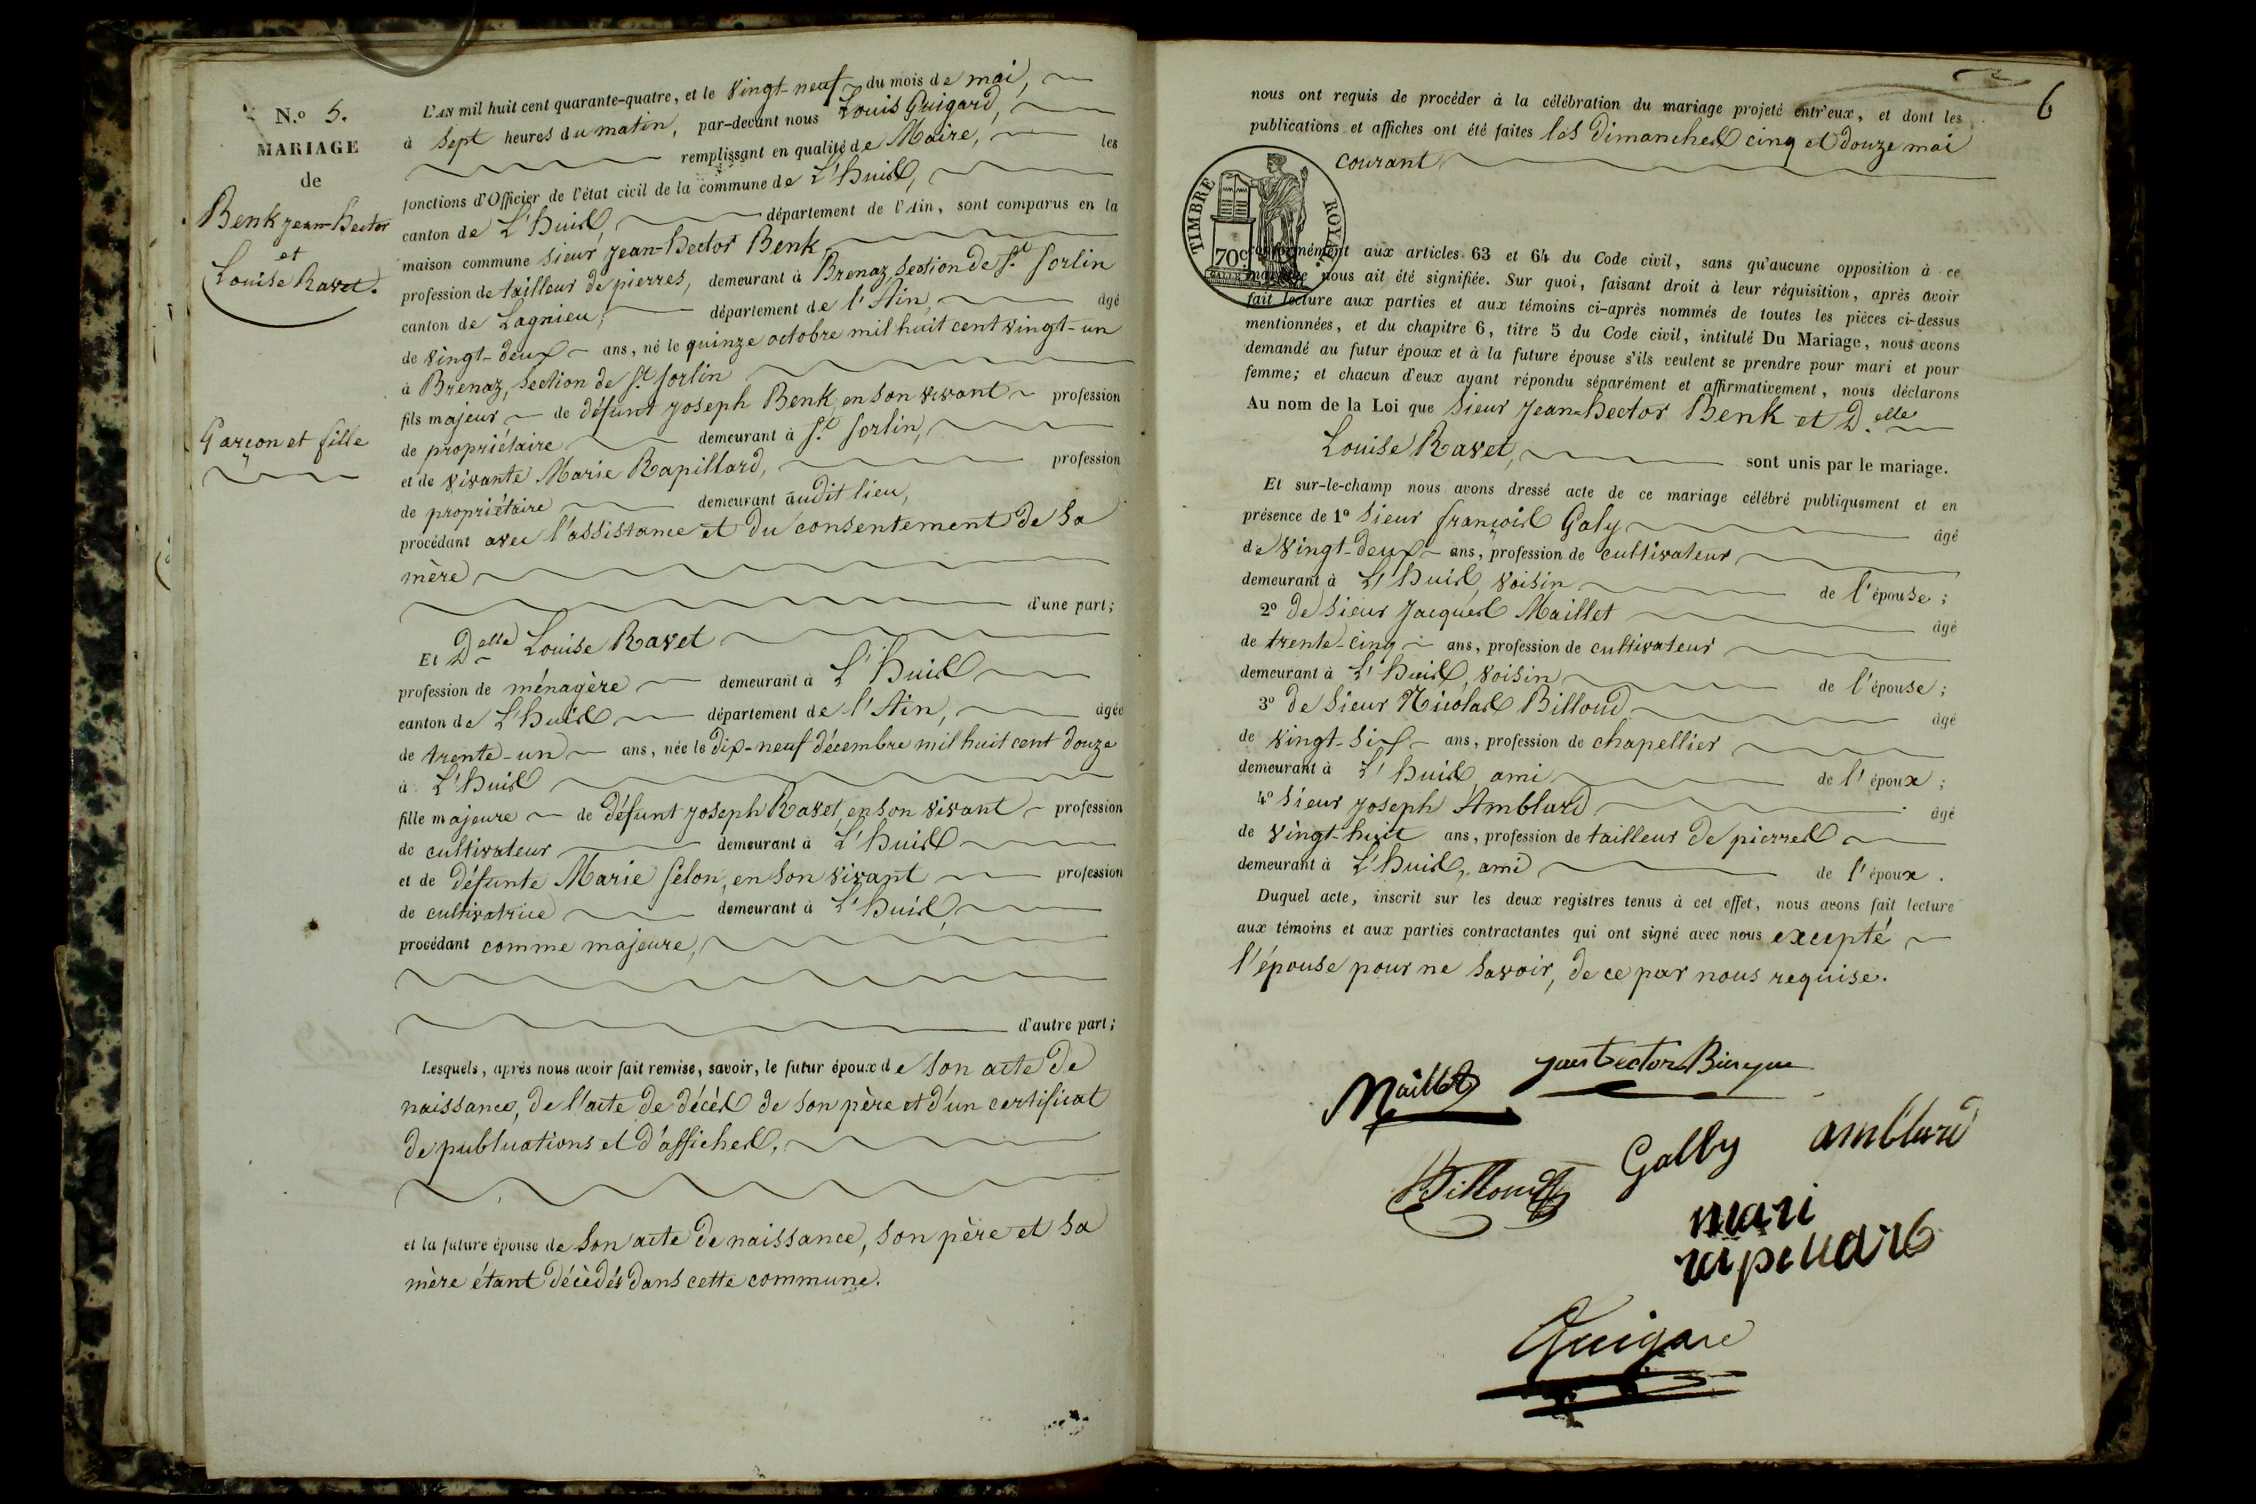 N.o 5.
MARIAGE
de
Benk jean-hector
et
Louise Ravet.
Garçon et fille
L'AN mil huit cent quarante-quatre, et le vingt-neuf du mois de mai,
à sept heures du matin, par-devant nous Louis Guigard,
remplissant en qualité de Maire, les
fonctions d'Officier de l'état civil de la commune de L'huis,
canton de L'huis, département de l'Ain, sont comparus en la
maison commune sieur jean-hector Benk,
profession de tailleur de pierres, demeurant à Brenaz, section de St. Sorlin
canton de Lagnieu, département de l'Ain, âgé
de vingt-deux ans, né le quinze octobre mil huit cent vingt-un
à Brenaz, section de St. Sorlin
fils majeur de défunt joseph Benk, en son vivant profession
de propriétaire demeurant à St. Sorlin,
et de vivante Marie Rapillard, profession
de propriétaire demeurant audit lieu,
procédant avec l'assistance et du consentement de sa
mère
d'une part;
Et Delle Louise Ravet
profession de ménagère demeurant à L'huis
canton de L'huis département de l'Ain, âgée
de trente-un ans, née le dix-neuf décembre mil huit cent douze
à L'huis
fille majeure de défunt joseph Ravet, en son vivant profession
de cultivateur demeurant à L'huis
et de défunte Marie Selon, en son vivant profession
de cultivatrice demeurant à L'huis,
procédant comme majeure,
d'autre part;
Lesquels, après nous avoir fait remise, savoir, le futur époux de son acte de
naissance, de l'acte de décès de son père et d'un certificat
de publications et d'affiches,
et la future épouse de son acte de naissance, son père et sa
mère étant décédés dans cette commune.
6
nous ont requis de procéder à la célébration du mariage projeté entr'eux, et dont les
publications et affiches ont été faites les dimanches cinq et douze mai
courant
TIMBRE ROYAL
70c
conformément aux articles 63 et 64 du Code civil, sans qu'aucune opposition à ce
mariage nous ait été signifiée. Sur quoi, faisant droit à leur réquisition, après avoir
fait lecture aux parties et aux témoins ci-après nommés de toutes les pièces ci-dessus
mentionnées, et du chapitre 6, titre 5 du Code civil, intitulé Du Mariage, nous avons
demandé au futur époux et à la future épouse s'ils veulent se prendre pour mari et pour
femme; et chacun d'eux ayant répondu séparément et affirmativement, nous déclarons
Au nom de la Loi que sieur jean-hector Benk et Delle
Louise Ravet, sont unis par le mariage.
Et sur-le-champ nous avons dressé acte de ce mariage célébré publiquement et en
présence de 1o sieur françois Galy âgé
de vingt-deux ans, profession de cultivateur
demeurant à L'huis, voisin de l'épouse;
2o de sieur jacques Maillet âgé
de trente-cinq ans, profession de cultivateur
demeurant à L'huis, voisin de l'épouse;
3o de sieur Nicolas Billoud âgé
de vingt-six ans, profession de chapellier
demeurant à L'huis, ami de l'époux;
4o sieur joseph Amblard âgé
de vingt-huit ans, profession de tailleur de pierres
demeurant à L'huis, ami de l'époux.
Duquel acte, inscrit sur les deux registres tenus à cet effet, nous avons fait lecture
aux témoins et aux parties contractantes qui ont signé avec nous excepté
l'épouse pour ne savoir, de ce par nous requise.
Maillet
Billoud
Galby
amblard
mari
Guigard